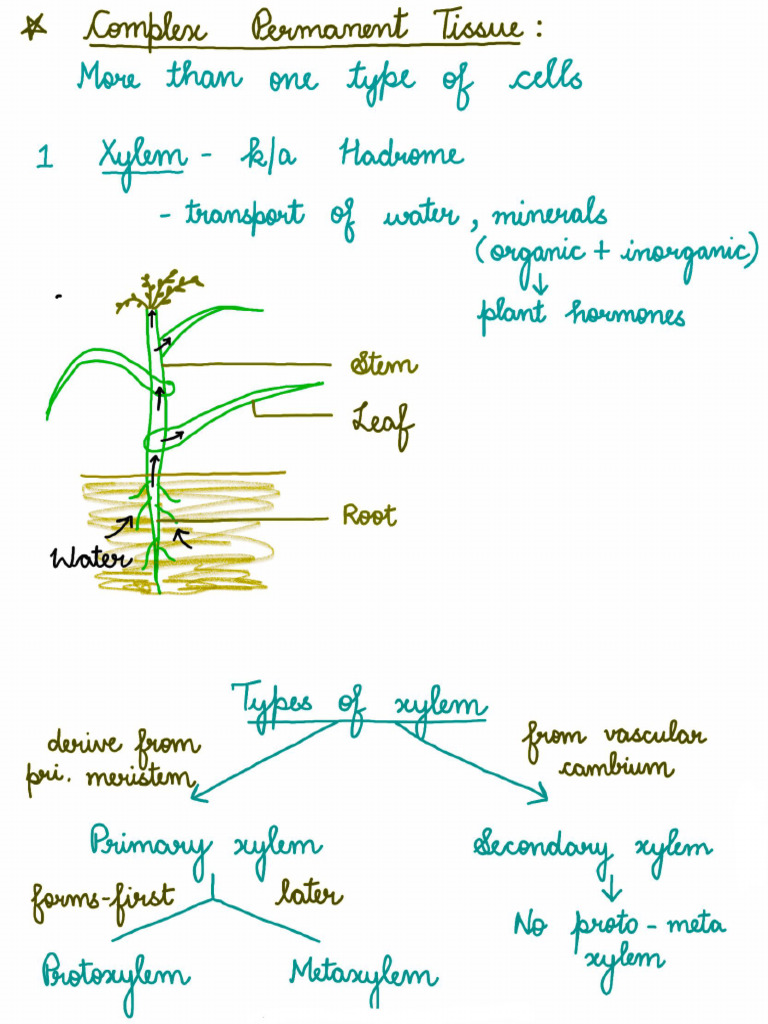 ☆ Complex Permanent Tissue :
More than one type of cells
1 Xylem - k/a Hadrome
- transport of water, minerals
(organic + inorganic)
↓
plant hormones
Stem
Leaf
Root
Water
Types of xylem
derive from
pri. meristem
from vascular
cambium
Primary xylem
Secondary xylem
↓
forms-first
later
No proto-meta
xylem
Protoxylem
Metaxylem